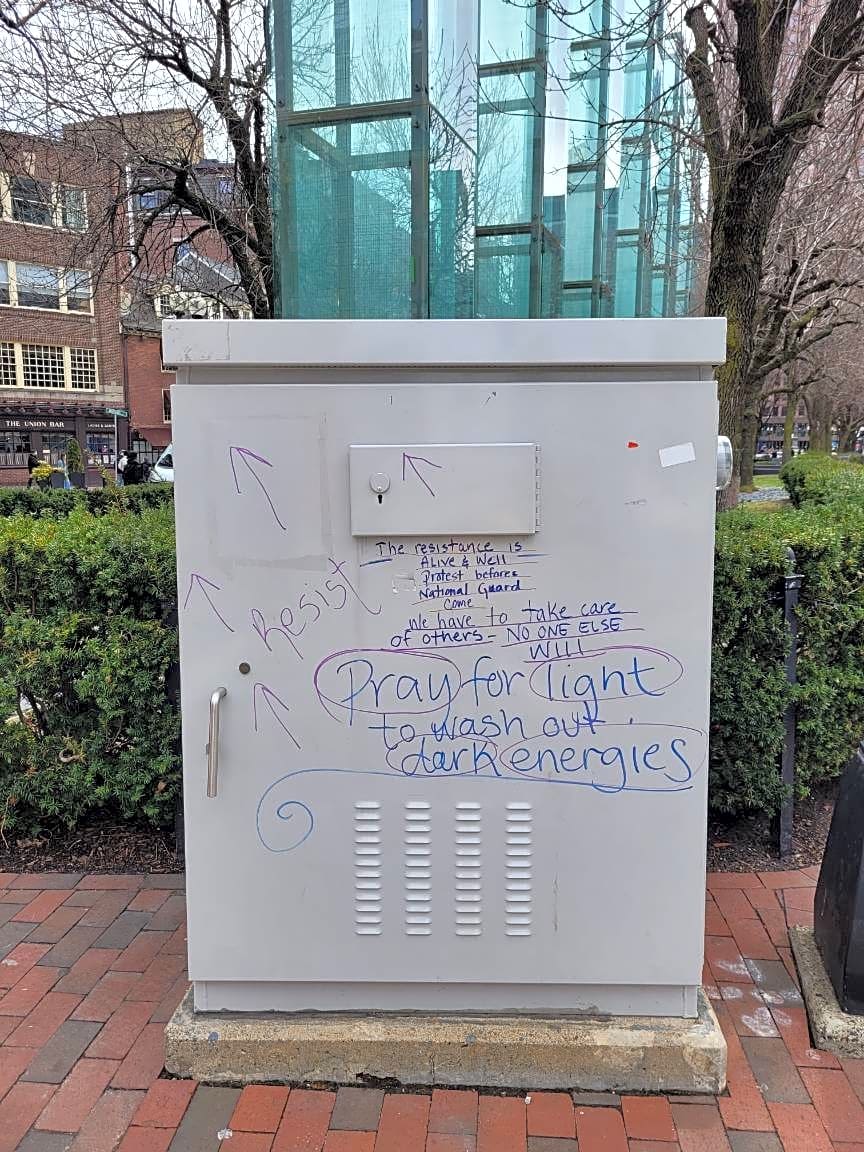 THE UNION BAR
The resistance is
Alive & Well
Protest before
National Guard
come
We have to take care
of others - NO ONE ELSE
WILL
Resist
Pray for light
to wash out
dark energies